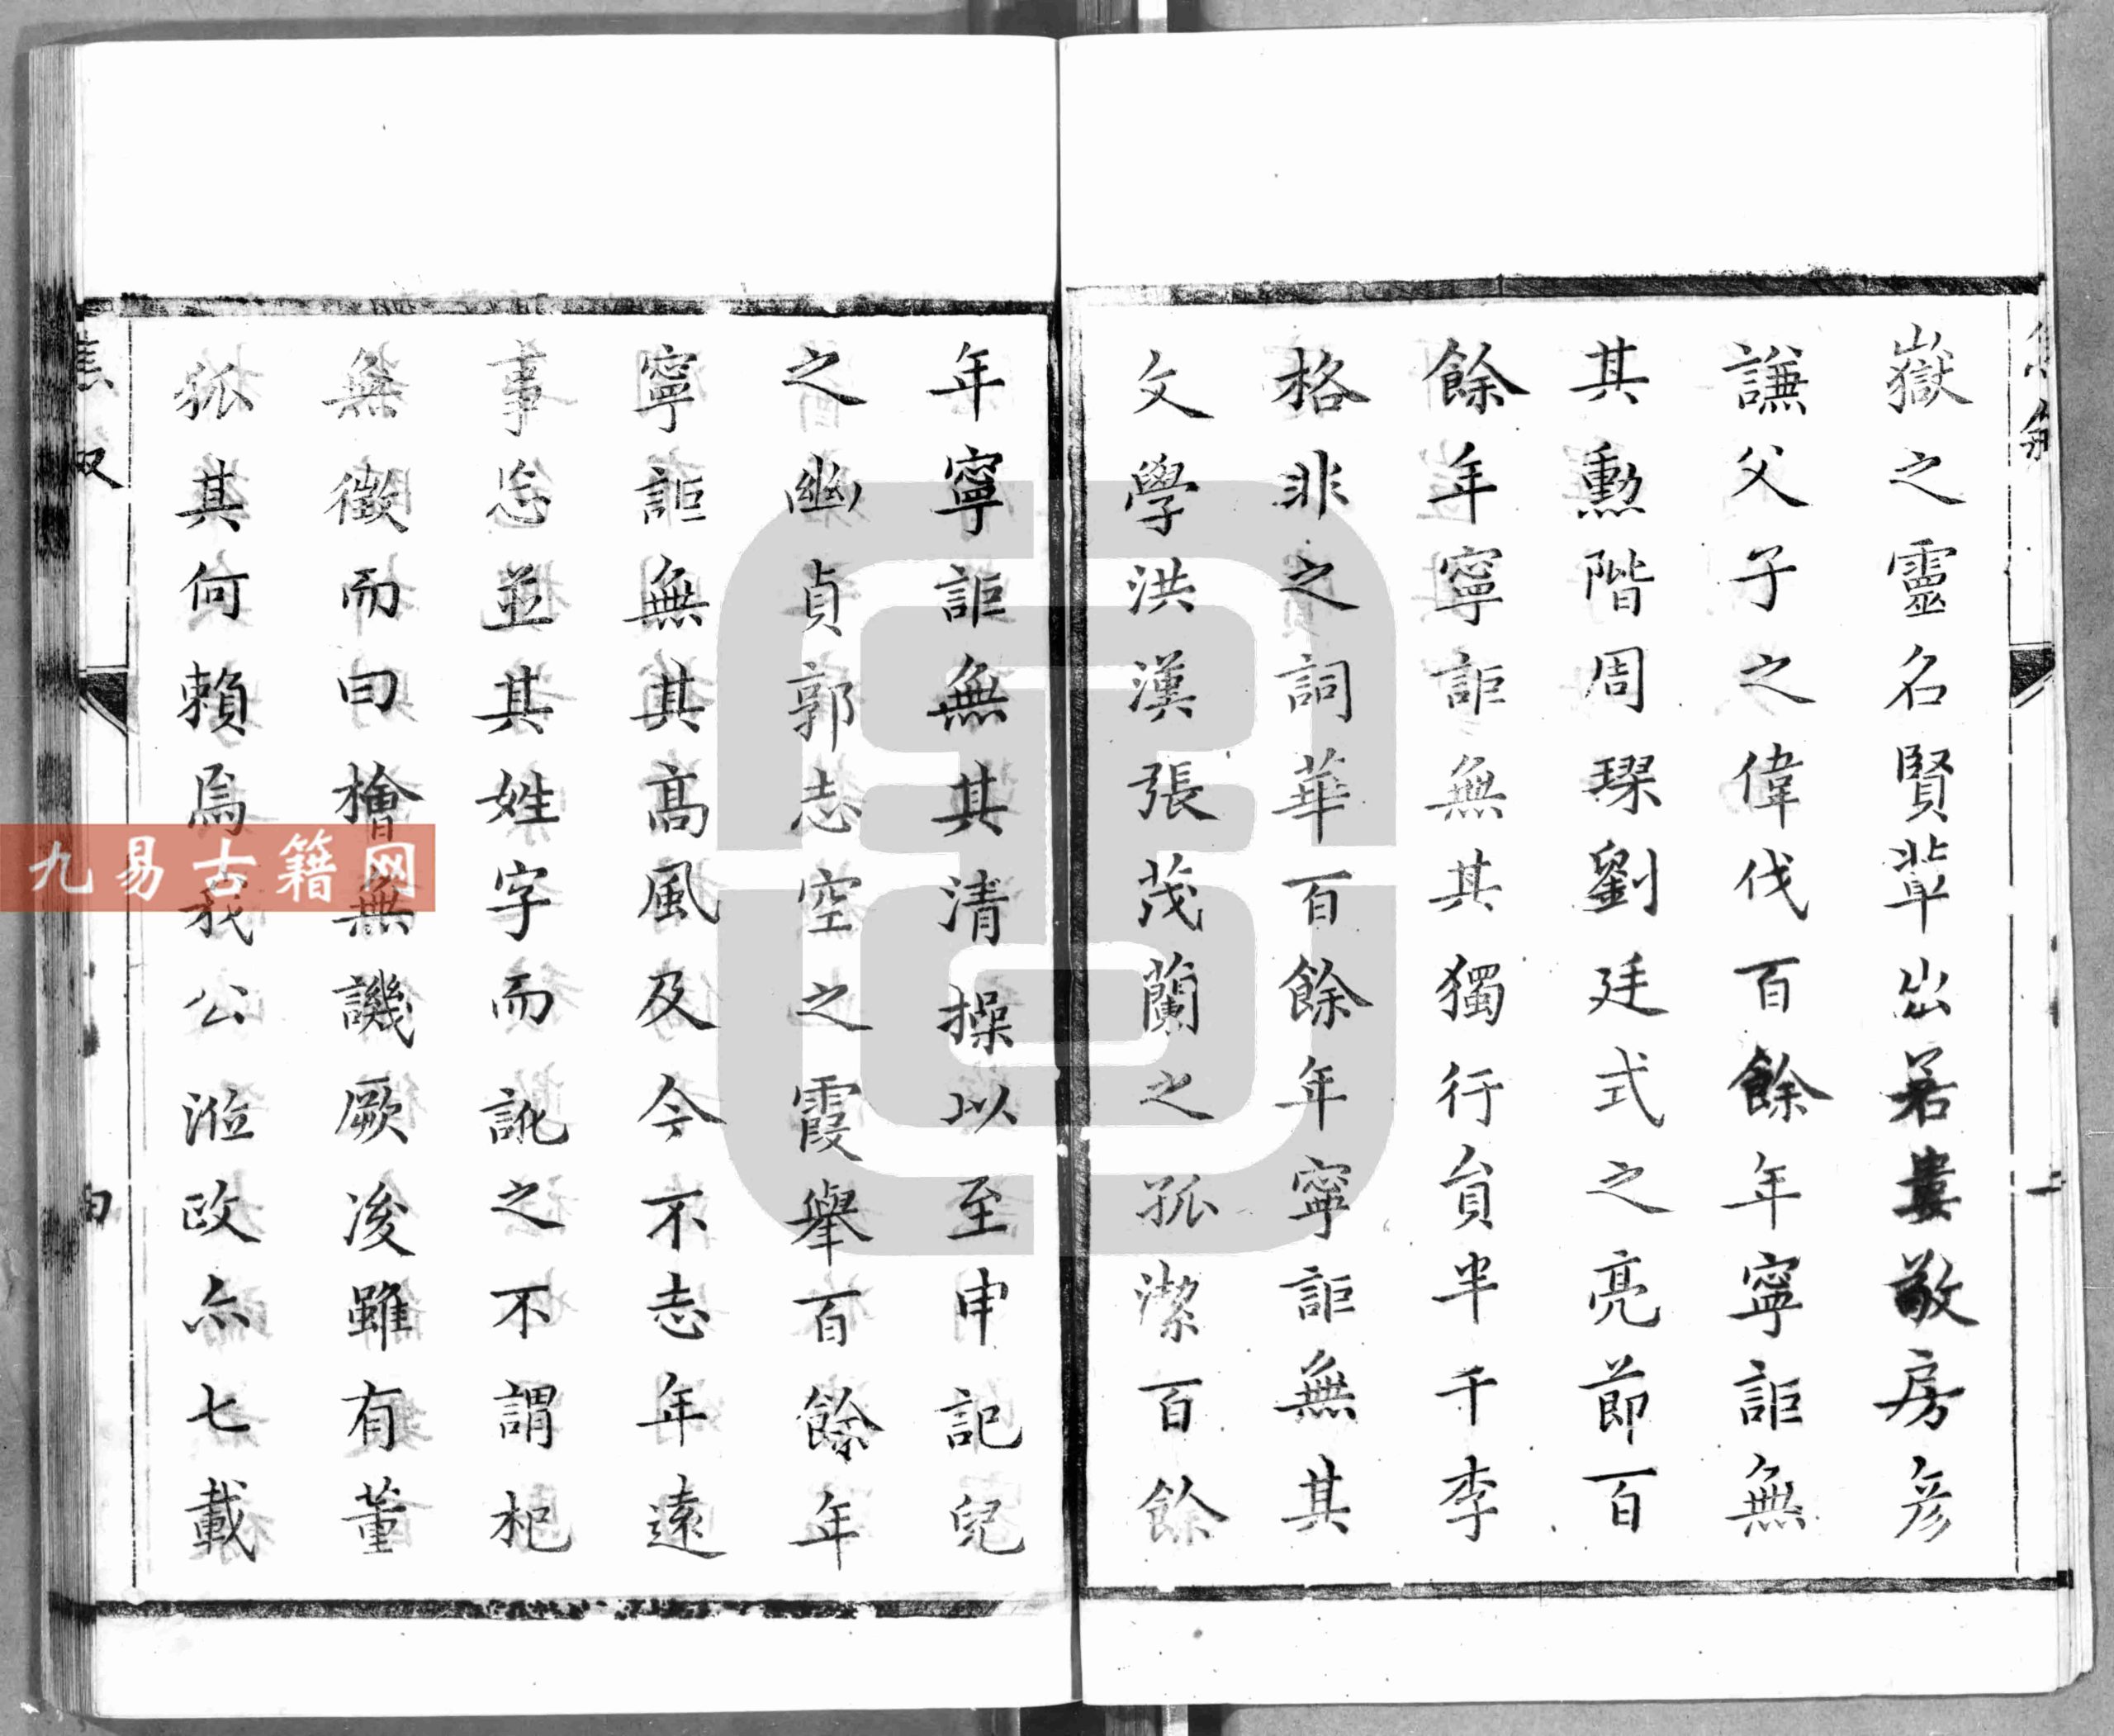 嶽之靈名賢軰出若婁敬房彦
謙父子之偉伐百餘年寧詎無
其勲階周琛劉廷式之亮節百
餘年寧詎無其獨行貟半千李
格非之詞華百餘年寧詎無其
文學洪漢張茂蘭之孤潔百餘
年寧詎無其清操以至申記兒
之幽貞郭志空之霞舉百餘年
寧詎無其髙風及今不志年遠
事忘並其姓字而訛之不謂杞
無徴而曰檜無譏厥後雖有董
狐其何賴焉我公涖政亦七載
九易古籍网